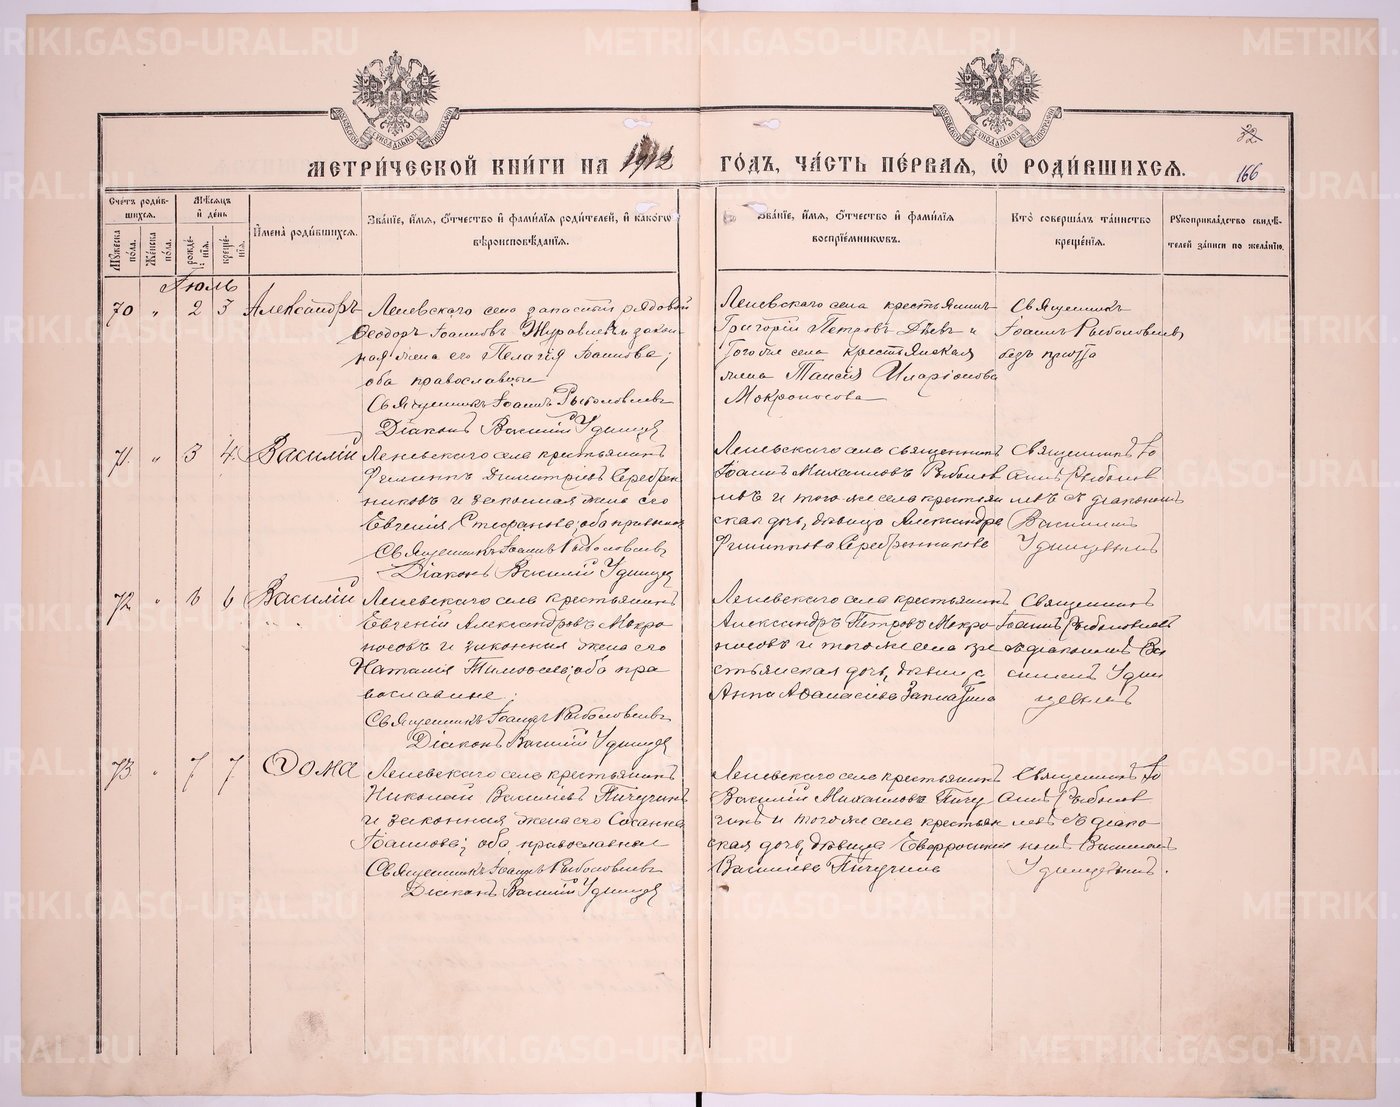 МЕТРИЧЕСКОЙ КНИГИ НА 1912 ГОДЪ, ЧАСТЬ ПЕРВАЯ, Ѽ РОДИВШИХСЯ.
166
Счетъ родив-
шихся.
Мужеска пола.
Женска пола.
Мѣсяцъ и день
рожде-
нія.
креще-
нія.
Имена родившихся.
Званіе, имя, отчество и фамилія родителей, и какогѡ
вѣроисповѣданія.
Званіе, имя, отчество и фамилія
воспріемниковъ.
Кто совершалъ таинство
крещенія.
Рукоприкладство свидѣ-
телей записи по желанію.
Іюль
70 " 2 3 Александръ
Леневскаго села запасный рядовой
Ѳеодоръ Іоанновъ Журавлевъ и закон-
ная жена его Пелагія Іоаннова;
оба православные
Священникъ Іоаннъ Рыболовлевъ
Діаконъ Василій Удинцев
Леневскаго села крестьянинъ
Григорій Петровъ Дѣев и
того же села крестьянская
жена Таисія Иларіонова
Мокроносова
Священникъ
Іоаннъ Рыболовлевъ,
безъ причта
71. " 3 4 Василій
Леневскаго села крестьянинъ
Филиппъ Димитріевъ Серебрен-
никовъ и законная жена его
Евгенія Стефанова; оба православ
Священникъ Іоаннъ Рыболовлевъ
Діаконъ Василій Удинцев
Леневскаго села священникъ
Іоаннъ Михаиловъ Рыболов
левъ и того же села крестьян
ская дочь, дѣвица Александра
Филиппова Серебренникова
Священникъ Іо
аннъ Рыболов
левъ съ діакономъ
Василіемъ
Удинцевымъ
72 " 6 6 Василій
Леневскаго села крестьянинъ
Евгеній Александровъ Мокро
носовъ и законная жена его
Наталія Тимоѳеева; оба пра
вославные;
Священникъ Іоаннъ Рыболовлевъ
Діаконъ Василій Удинцев
Леневскаго села крестьянинъ
Александръ Петровъ Мокро
носовъ и того же села кре
стьянская дочь, дѣвица
Анна Аѳанасіева Заплатина
Священникъ
Іоаннъ Рыболовлевъ
съ діакономъ Ва
силіемъ Удин
цевымъ
73 " 7 7 Ѳома
Леневскаго села крестьянинъ
Николай Василіевъ Пичугинъ
и законная жена его Сосанна
Іоаннова; оба православные
Священникъ Іоаннъ Рыболовлевъ
Діаконъ Василій Удинцев
Леневскаго села крестьянинъ
Василій Михаиловъ Пичу
гинъ и того же села крестьян
ская дочь, дѣвица Евфросинія
Василіева Пичугина
Священникъ Іо
аннъ Рыболов
левъ съ діако
номъ Василіемъ
Удинцевымъ.
METRIKI.GASO-URAL.RU